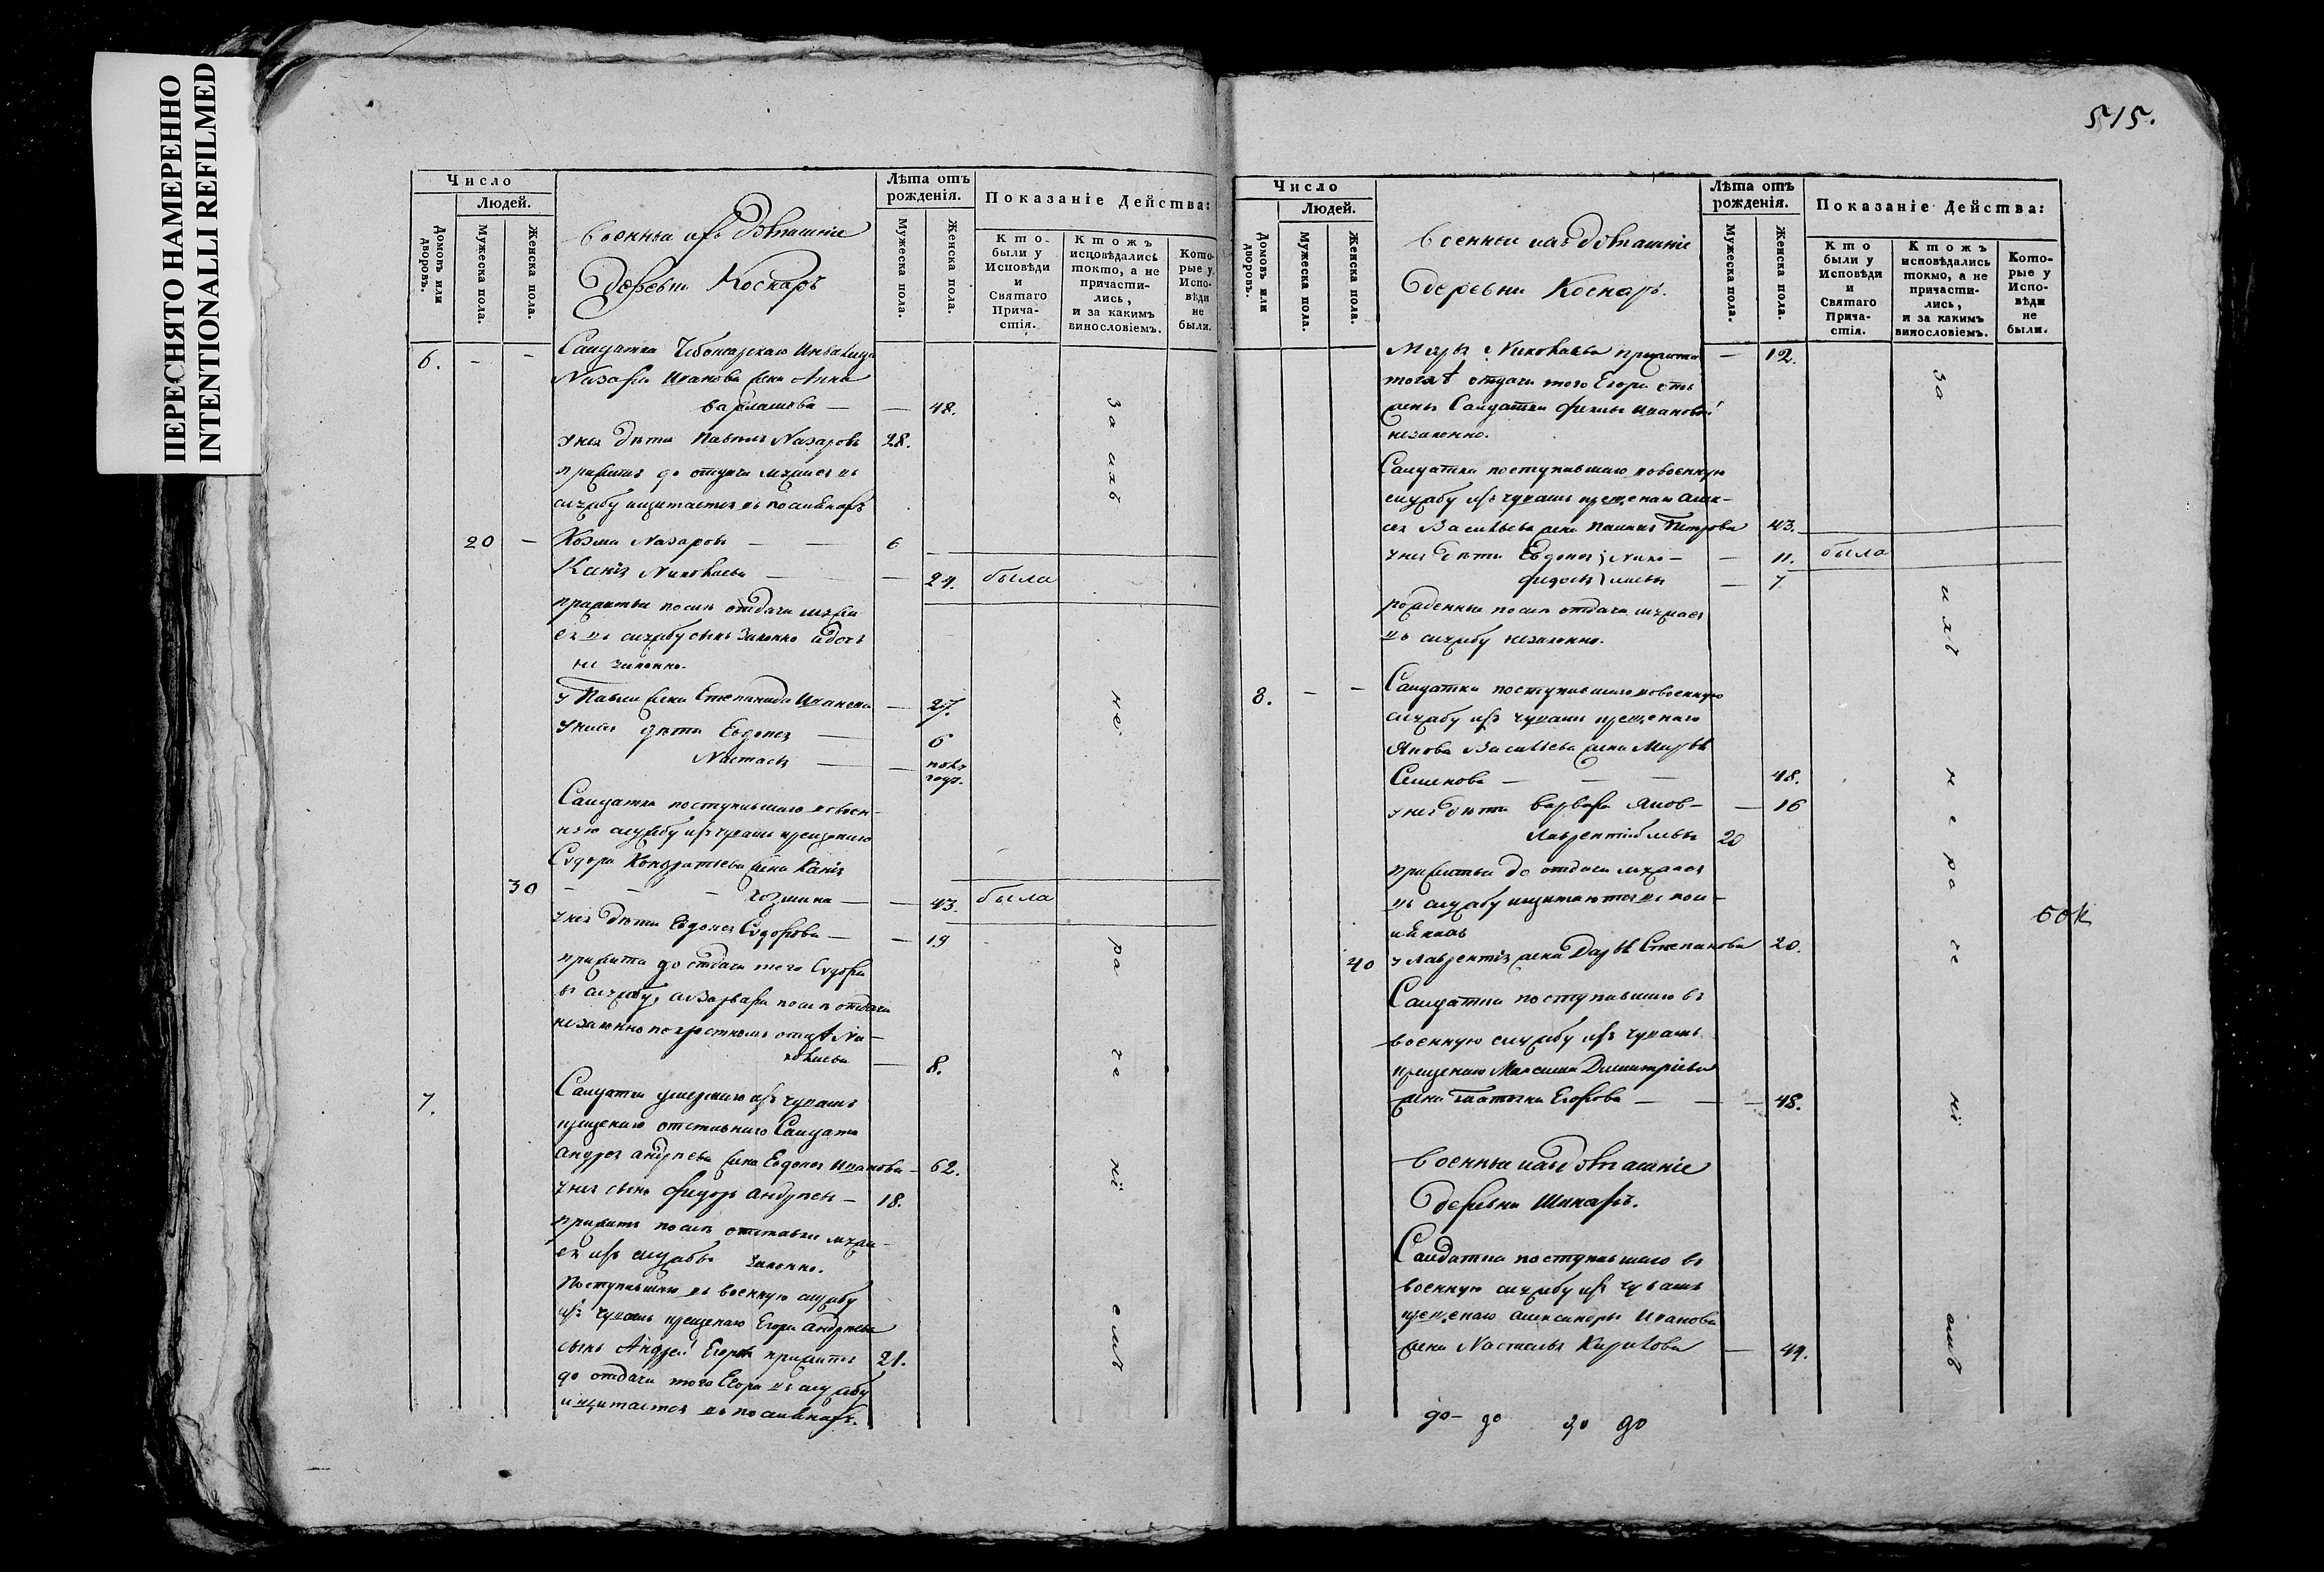 ПЕРЕСНЯТО НАМЕРЕННО
INTENTIONALLI REFILMED
Число
Людей.
Домовъ или дворовъ.
Мужеска пола.
Женска пола.
Военныи изъ домашніе
Деревни Коснаръ
Лѣта отъ рожденія.
Мужеска пола.
Женска пола.
Показаніе Действа:
Кто были у Исповѣди и Святаго Прича-стія.
Ктожъ исповѣдались токто, а не причасти-лись, и за какимъ винословіемъ.
Кото-рые у Испо-вѣди не были.
6. - - Салдатка Чебоксарскаго
Назара Иванова жена Анна
Варламова — — 48.
У нея дѣти Павелъ Назаровъ 28.
прижитъ до отдачи мужа ея въ
службу
20 - Козма Назаровъ — — 6
Николаева — — 24. была
прижиты послѣ отдачи мужа
ея въ службу сынъ законно а дочь
не законно.
У Павла жена Степанида Иванова — 27.
У нихъ дѣти Евдокея — 6
Настасья — — полъ года.
Салдатка поступившаго в воен-
ную службу изъ чувашъ крещенаго
Сидора Кондратьева жена
30 - - - Козмина — — 43. была
У нея дѣти Евдокея Сидорова — — 19
прижита до отдачи того Сидора
въ службу, а Варвара послѣ отдачи
незаконно по крестномъ отцѣ Ни-
колаева — 8.
7. Салдатка умершаго изъ чувашъ
крещенаго отставнаго Салдата
Андрея Андреева жена Евдокея Иванова — 62.
У нея сынъ Федоръ Андреевъ — 18.
прижитъ послѣ отставки мужа
ея изъ службы законно.
Поступившаго въ военную службу
изъ чувашъ крещенаго Егора Андреева
сынъ Андрей Егоровъ прижитъ 21.
до отдачи того Егора въ службу
за ихъ не ра че ні емъ
515.
Число
Людей.
Домовъ или дворовъ.
Мужеска пола.
Женска пола.
Военныи изъ домашніе
Деревни Коснаръ.
Лѣта отъ рожденія.
Мужеска пола.
Женска пола.
Показаніе Действа:
Кто были у Исповѣди и Святаго Прича-стія.
Ктожъ исповѣдались токмо, а не причасти-лись, и за какимъ винословіемъ.
Кото-рые у Испо-вѣди не были.
Николаева прижита — 12.
отдачи того Егора отъ
жены Салдатки Ивановой
незаконно.
Салдатка поступившаго в военную
службу изъ чувашъ крещенаго Алек-
сея Васильева жена Петрова 43.
У нея дѣти Евдокея Нико- — 11. была
Федосья лаевы — 7
рожденныи послѣ отдачи мужа ея
въ службу незаконно.
8. - - Салдатка поступившаго в военную
службу изъ чувашъ крещенаго
Якова Васильева жена
Семенова — — — 48.
у нея дѣти Варвара Яков- — 16
Лаврентій левы 20
прижиты до отдачи мужа ея
въ службу
40 у Лаврентія жена Степанова 20.
Салдатка поступившаго въ
военную службу изъ чувашъ
крещенаго Максима Димитріева
жена Татьяна Егорова — — — 48.
Военныи изъ домашніе
деревни Шинаръ.
Салдатка поступившаго въ
военную службу изъ чувашъ
крещенаго Александра Иванова
жена Настасья Кирилова — 44.
за ихъ не ра че ні емъ
50 к
до- до до до